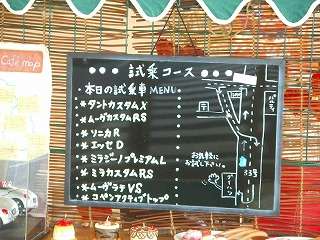 Cafe map
試乗コース
・本日の試乗車 MENU・
* タントカスタムX
* ムーヴカスタムRS
* ソニカR
* エッセD
* ミラジーノプレミアムL
* ミラカスタムRS
* ムーヴラテVS
* コペンアクティブトップ
お気軽に
お試し下さい。
333